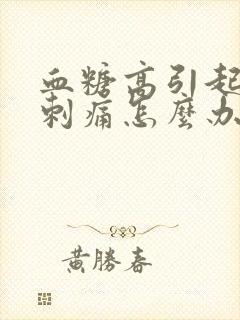 血糖高引起
刺痛怎麼办
黃勝春